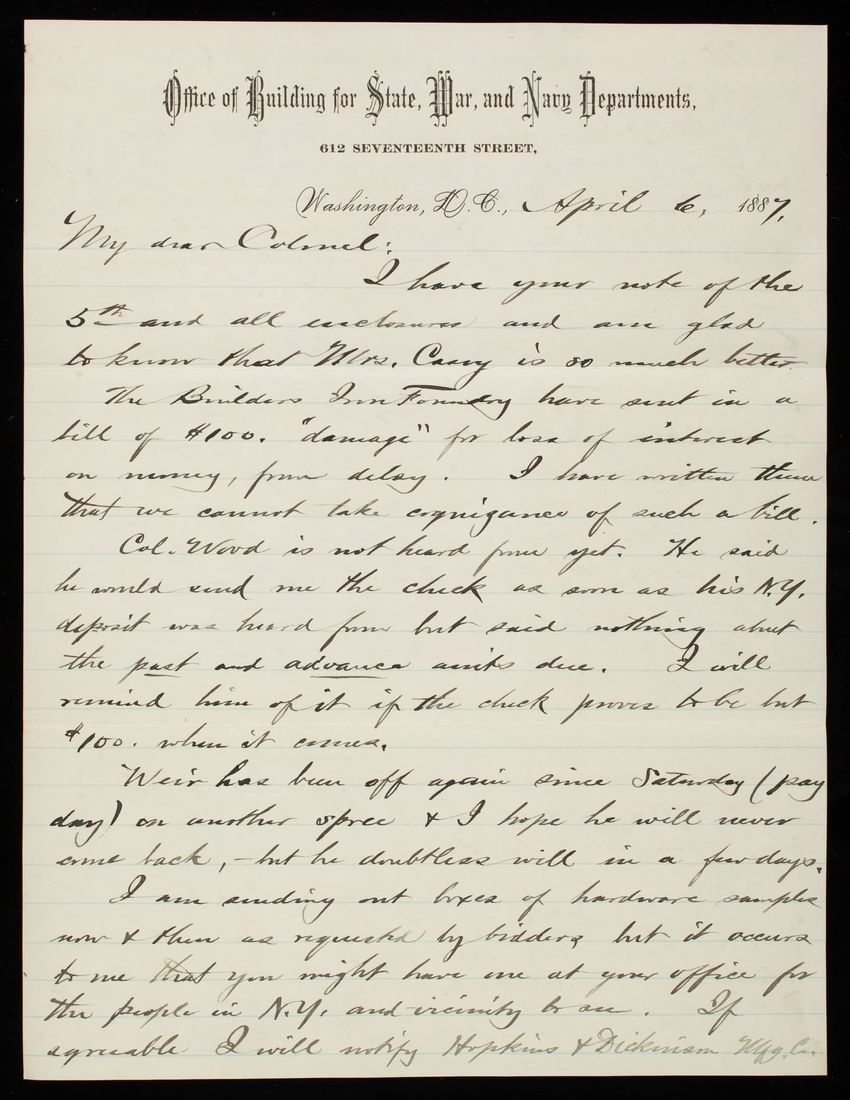 Office of Building for State, War, and Navy Departments,
612 SEVENTEENTH STREET,
Washington, D.C., April 6, 1887.
My dear Colonel:
I have your note of the
5th and all enclosures and am glad
to know that Mrs. Casey is so much better.
The Builders Iron Foundry have sent in a
bill of $100. "damage" for loss of interest
on money, from delay. I have written them
that we cannot take cognizance of such a bill.
Col. Wood is not heard from yet. He said
he would send me the check as soon as his N.Y.
deposit was heard from but said nothing about
the past and advance am'ts due. I will
remind him of it if the check proves to be but
$100. when it comes.
Weir has been off again since Saturday (pay
day) on another spree & I hope he will never
come back, - but he doubtless will in a few days.
I am sending out boxes of hardware samples
now & then as requested by bidders but it occurs
to me that you might have one at your office for
the people in N.Y. and vicinity to see. If
agreeable I will notify Hopkins & Dickinson Mfg. Co.